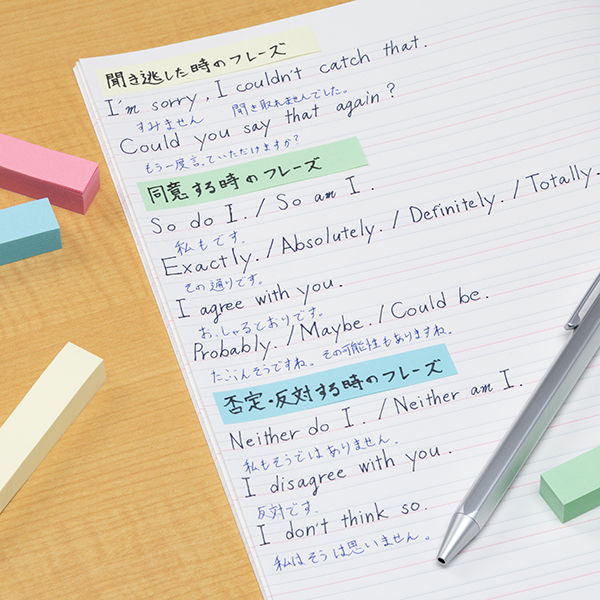 聞き逃した時のフレーズ
I'm sorry, I couldn't catch that.
すみません 聞き取れませんでした。
Could you say that again?
もう一度言っていただけますか?
同意する時のフレーズ
So do I. / So am I.
私もです。
Exactly. / Absolutely. / Definitely. / Totally.
その通りです。
I agree with you.
おっしゃるとおりです。
Probably. / Maybe. / Could be.
たぶんそうですね。その可能性もありますね。
否定・反対する時のフレーズ
Neither do I. / Neither am I.
私もそうではありません。
I disagree with you.
反対です。
I don't think so.
私はそうは思いません。